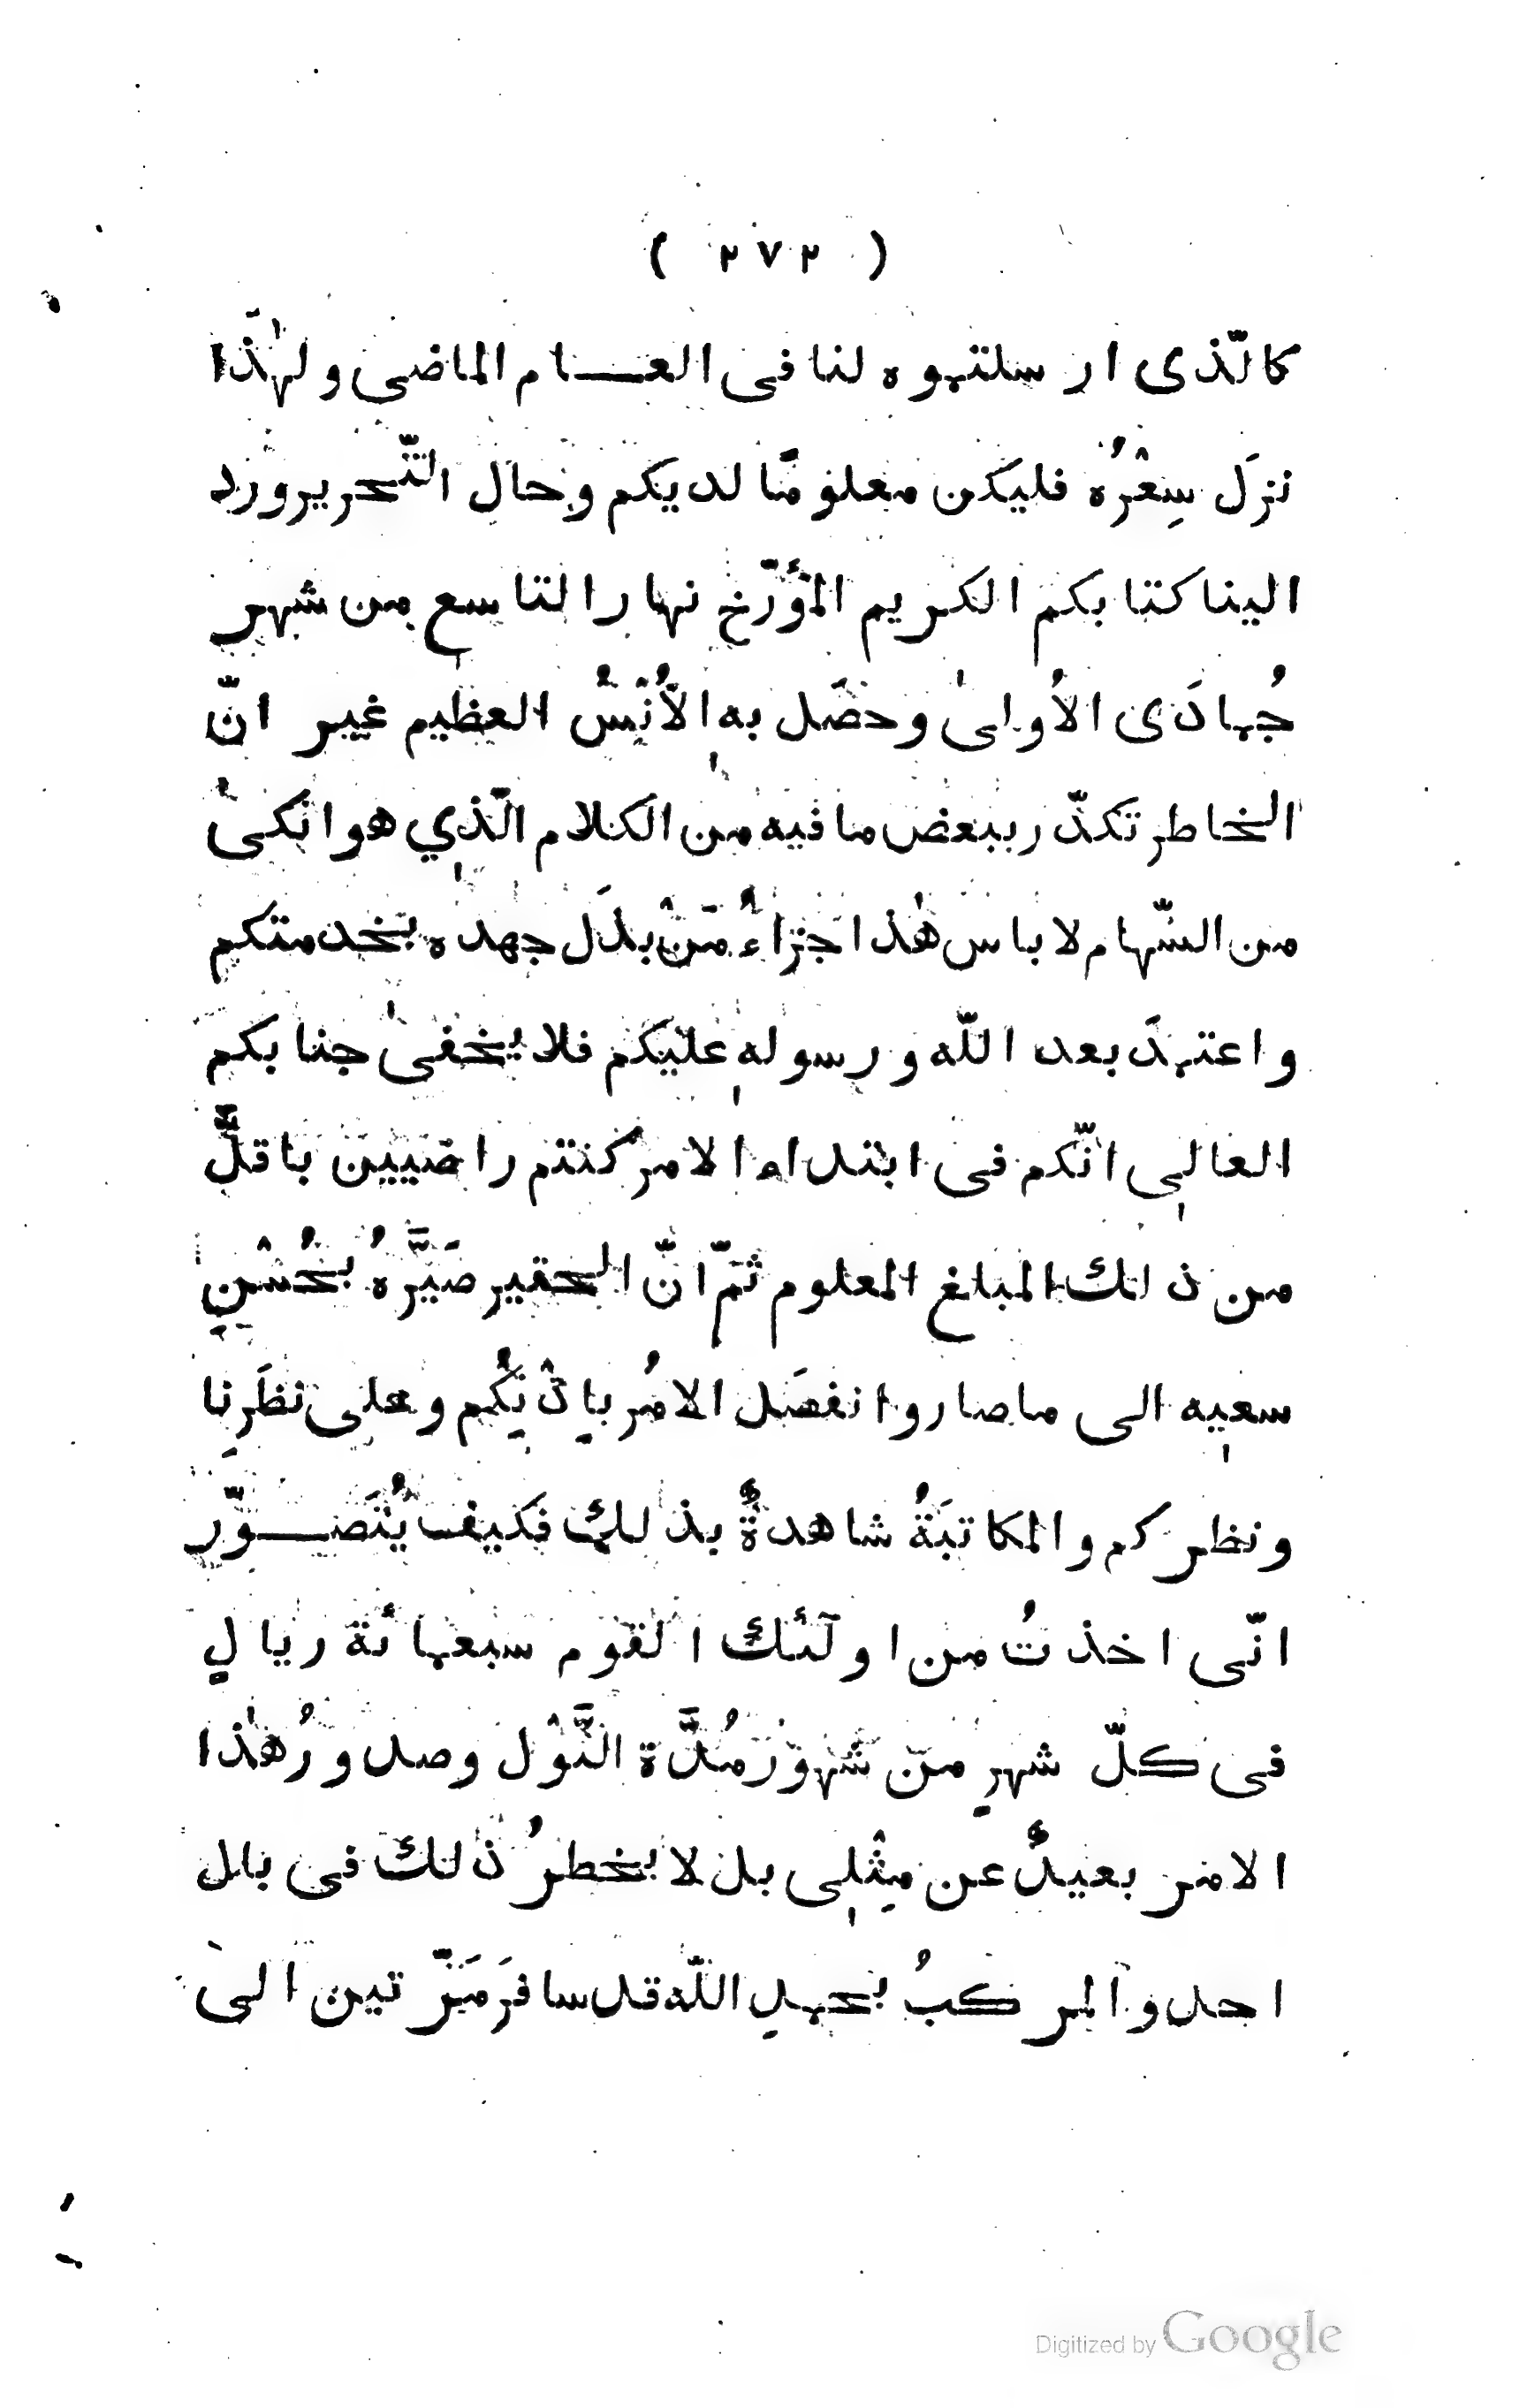 ( ٢٧٢ )
كالّذى ارسلتموه لنا فى العـــام الماضى ولهٰذا
نزلَ سِعْرُه فليكن معلومًا لديكم وحال التّحرير ورد
الينا كتابكم الكريم المؤرّخ نهار التاسع من شهر
جُمادَى الاُولىٰ وحصَل به الاُنْسُ العظيم غير انّ
الخاطر تكدّر ببعض ما فيه من الكلام الّذي هو انكىٰ
من السّهام لا باس هٰذا جزاءُ مَنْ بذَل جهده بخدمتكم
واعتمدَ بعد اللّه ورسولهٖ عليكم فلا يخفىٰ جنابكم
العالى انّكم فى ابتداء الامر كنتم راضيين باقلَّ
من ذلك المبلغ المعلوم ثمّ انّ الحقير صَيَّرَهُ بحُسْنِ
سعيهٖ الى ما صار وانفصَل الامُر باِذْنِكُم وعلى نظَرِنا
ونظركم والمكاتبَةُ شاهدةٌ بذلك فكيف يُتَصـــوّر
انّى اخذتُ من اولٓئك القوم سبعمائة ريالٍ
فى كلّ شهرٍ من شهور مُدَّة النَّوْل وصدورُ هٰذا
الامر بعيدٌ عن مِثْلى بل لا يخطرُ ذلك فى بال
احد والمركبُ بحمدِ اللّه قد سافرَ مَرّتين الى
Digitized by Google